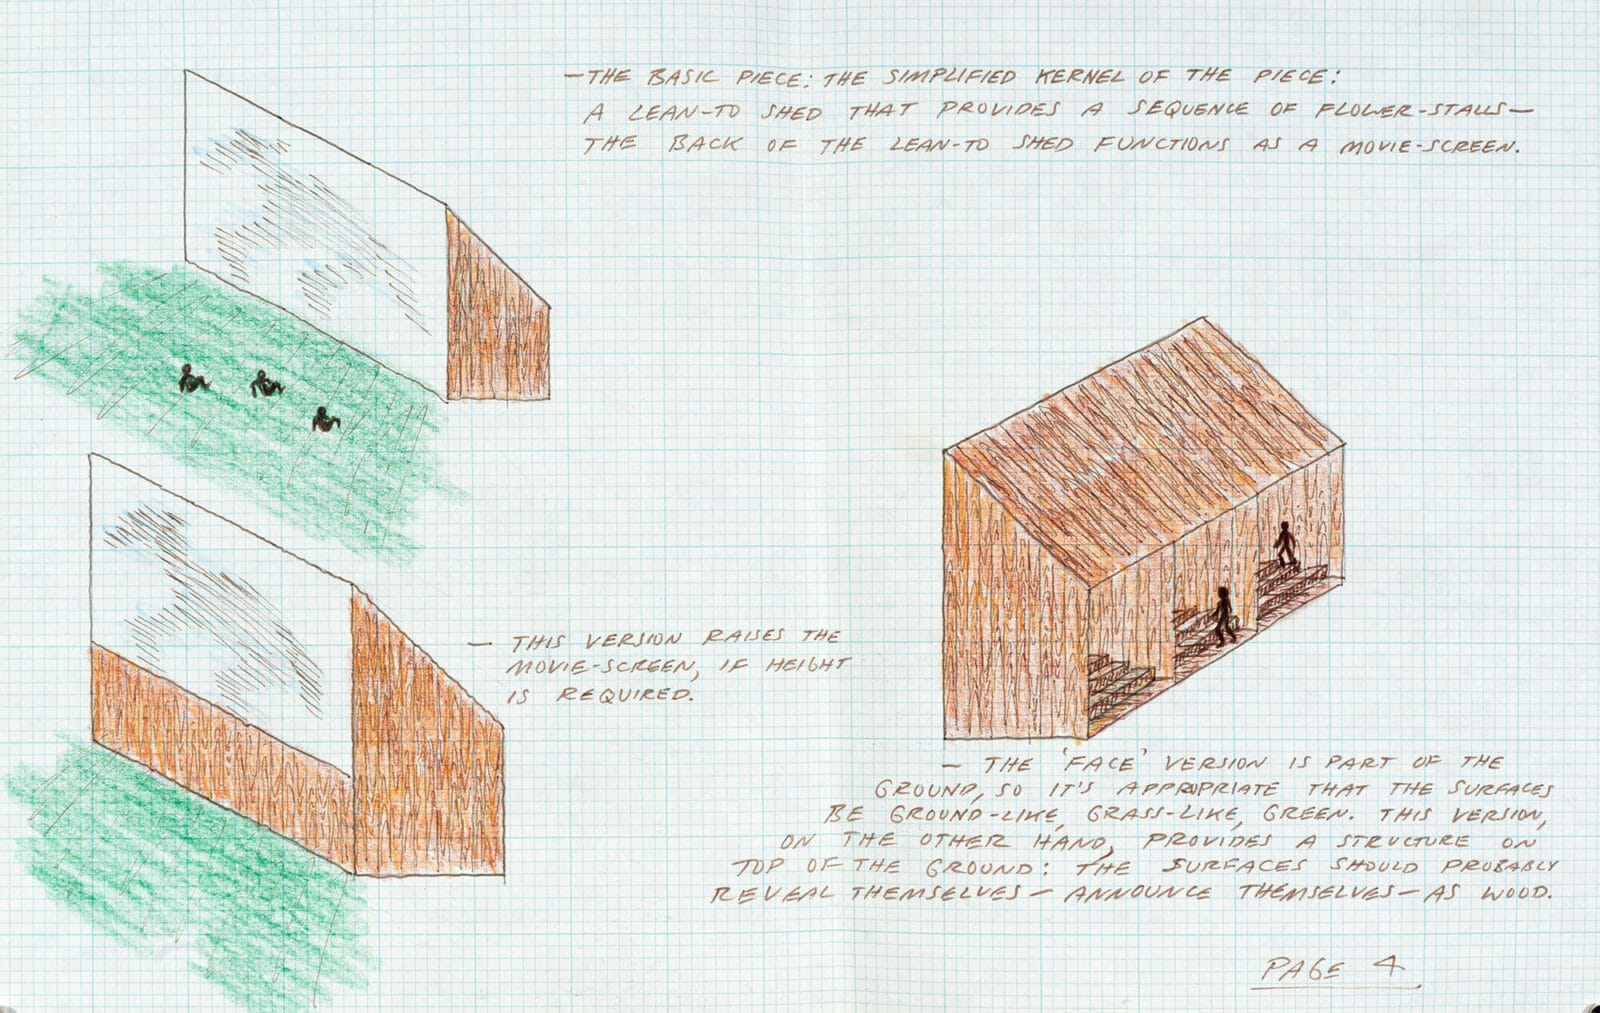 — THE BASIC PIECE: THE SIMPLIFIED KERNEL OF THE PIECE:
A LEAN-TO SHED THAT PROVIDES A SEQUENCE OF FLOWER-STALLS —
THE BACK OF THE LEAN-TO SHED FUNCTIONS AS A MOVIE-SCREEN.
— THIS VERSION RAISES THE
MOVIE-SCREEN, IF HEIGHT
IS REQUIRED.
— THE 'FACE' VERSION IS PART OF THE
GROUND, SO IT'S APPROPRIATE THAT THE SURFACES
BE GROUND-LIKE, GRASS-LIKE, GREEN. THIS VERSION,
ON THE OTHER HAND, PROVIDES A STRUCTURE ON
TOP OF THE GROUND: THE SURFACES SHOULD PROBABLY
REVEAL THEMSELVES — ANNOUNCE THEMSELVES — AS WOOD.
PAGE 4